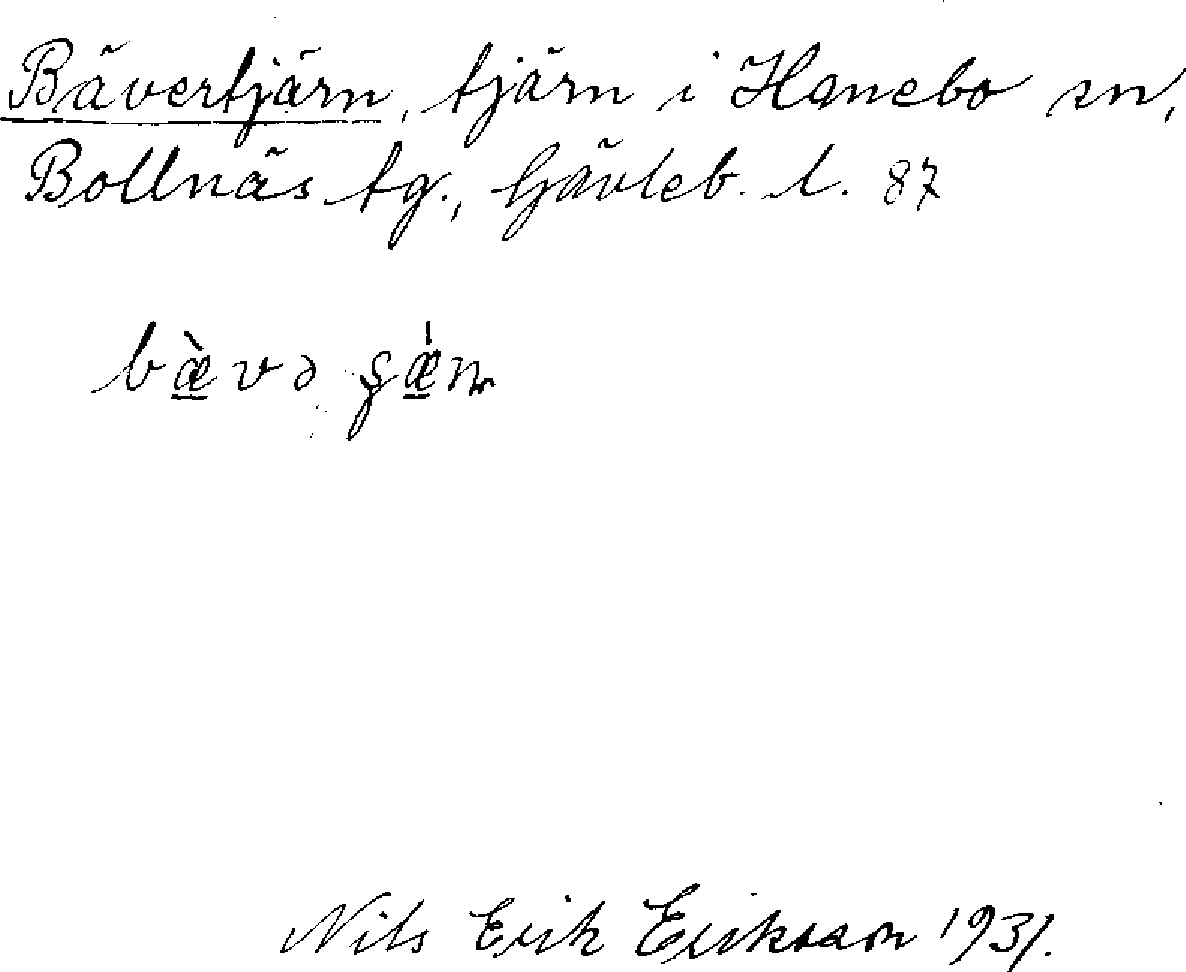 Bävertjärn, tjärn i Hanebo sn,
Bollnäs tg., Gävleb. l. 87
bæ̀və ʂǽɳ
Nils Erik Eriksson 1931.